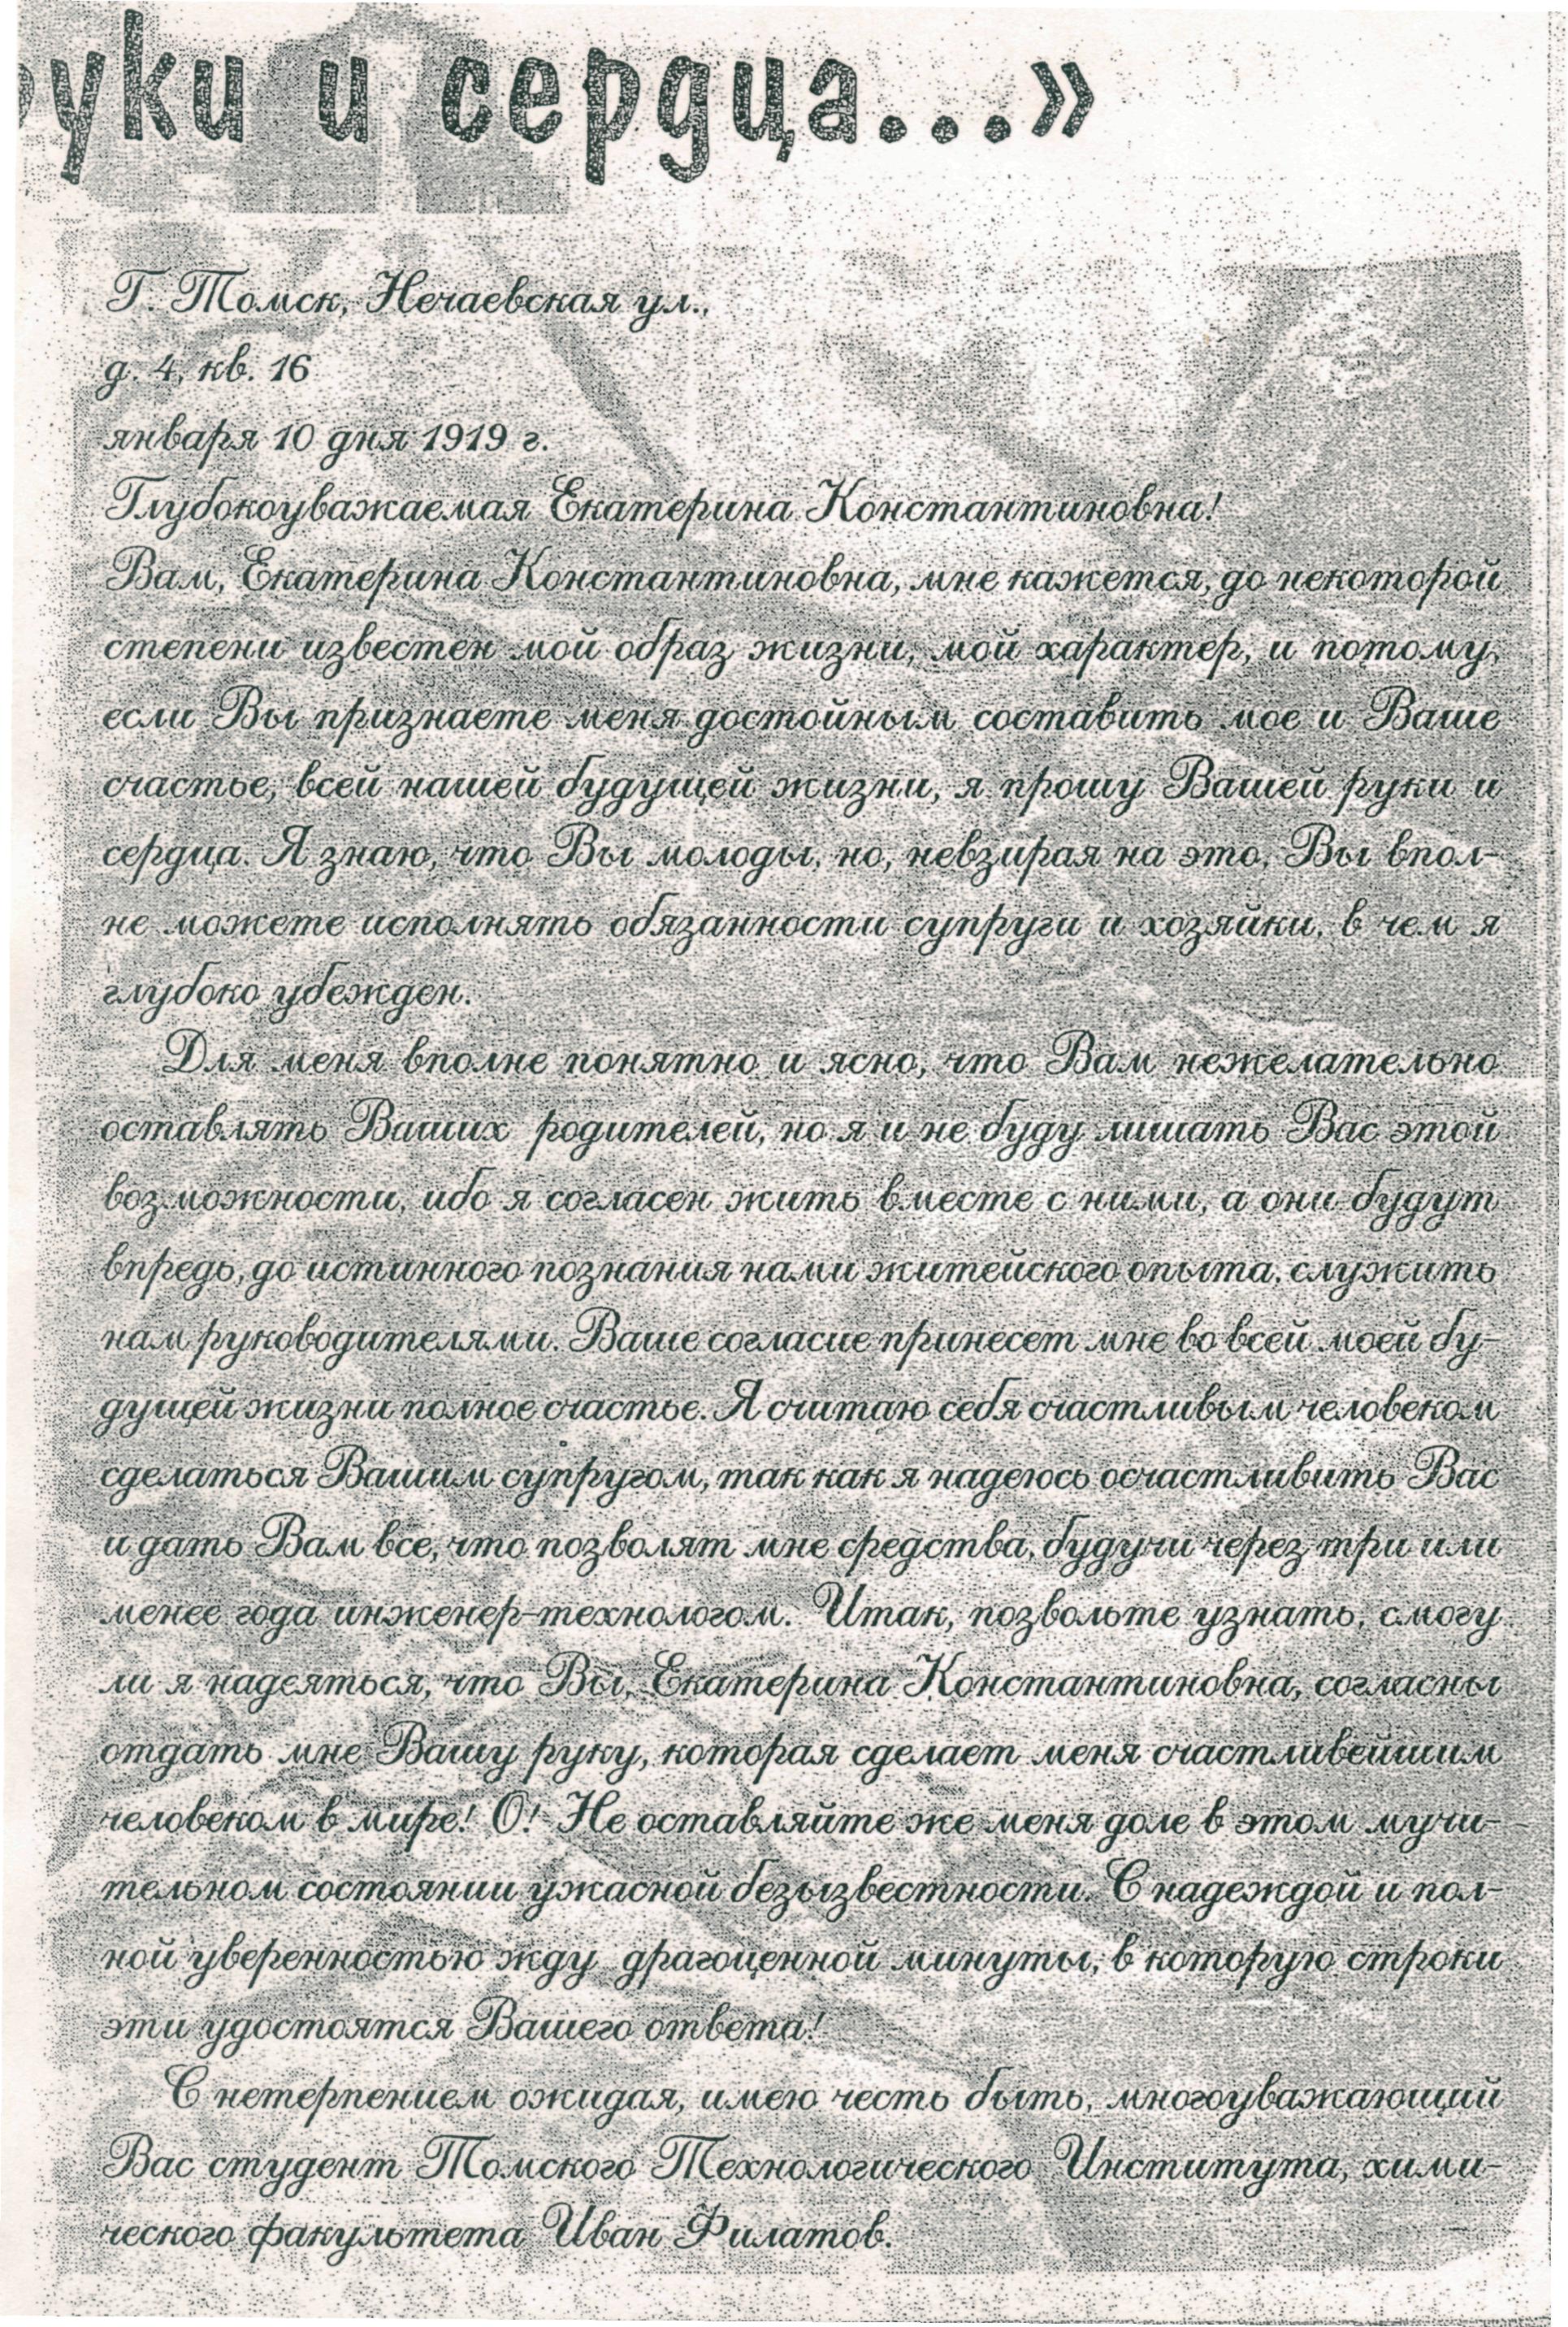 руки и сердца...»
Г. Томск, Нечаевская ул.,
д. 4, кв. 16
января 10 дня 1919 г.
Глубокоуважаемая Екатерина Константиновна!
Вам, Екатерина Константиновна, мне кажется, до некоторой
степени известен мой образ жизни, мой характер, и потому,
если Вы признаете меня достойным составить мое и Ваше
счастье, всей нашей будущей жизни, я прошу Вашей руки и
сердца. Я знаю, что Вы молоды, но, невзирая на это, Вы впол-
не можете исполнять обязанности супруги и хозяйки, в чем я
глубоко убежден.
Для меня вполне понятно и ясно, что Вам нежелательно
оставлять Ваших родителей, но я и не буду лишать Вас этой
возможности, ибо я согласен жить вместе с ними, а они будут
впредь, до истинного познания нами житейского опыта, служить
нам руководителями. Ваше согласие принесет мне во всей моей бу-
дущей жизни полное счастье. Я считаю себя счастливым человеком
сделаться Вашим супругом, так как я надеюсь осчастливить Вас
и дать Вам все, что позволят мне средства, будучи через три или
менее года инженер-технологом. Итак, позвольте узнать, смогу
ли я надеяться, что Вы, Екатерина Константиновна, согласны
отдать мне Вашу руку, которая сделает меня счастливейшим
человеком в мире! О! Не оставляйте же меня доле в этом мучи-
тельном состоянии ужасной безызвестности. С надеждой и пол-
ной уверенностью жду драгоценной минуты, в которую строки
эти удостоятся Вашего ответа!
С нетерпением ожидая, имею честь быть, многоуважающий
Вас студент Томского Технологического Института, хими-
ческого факультета Иван Филатов.